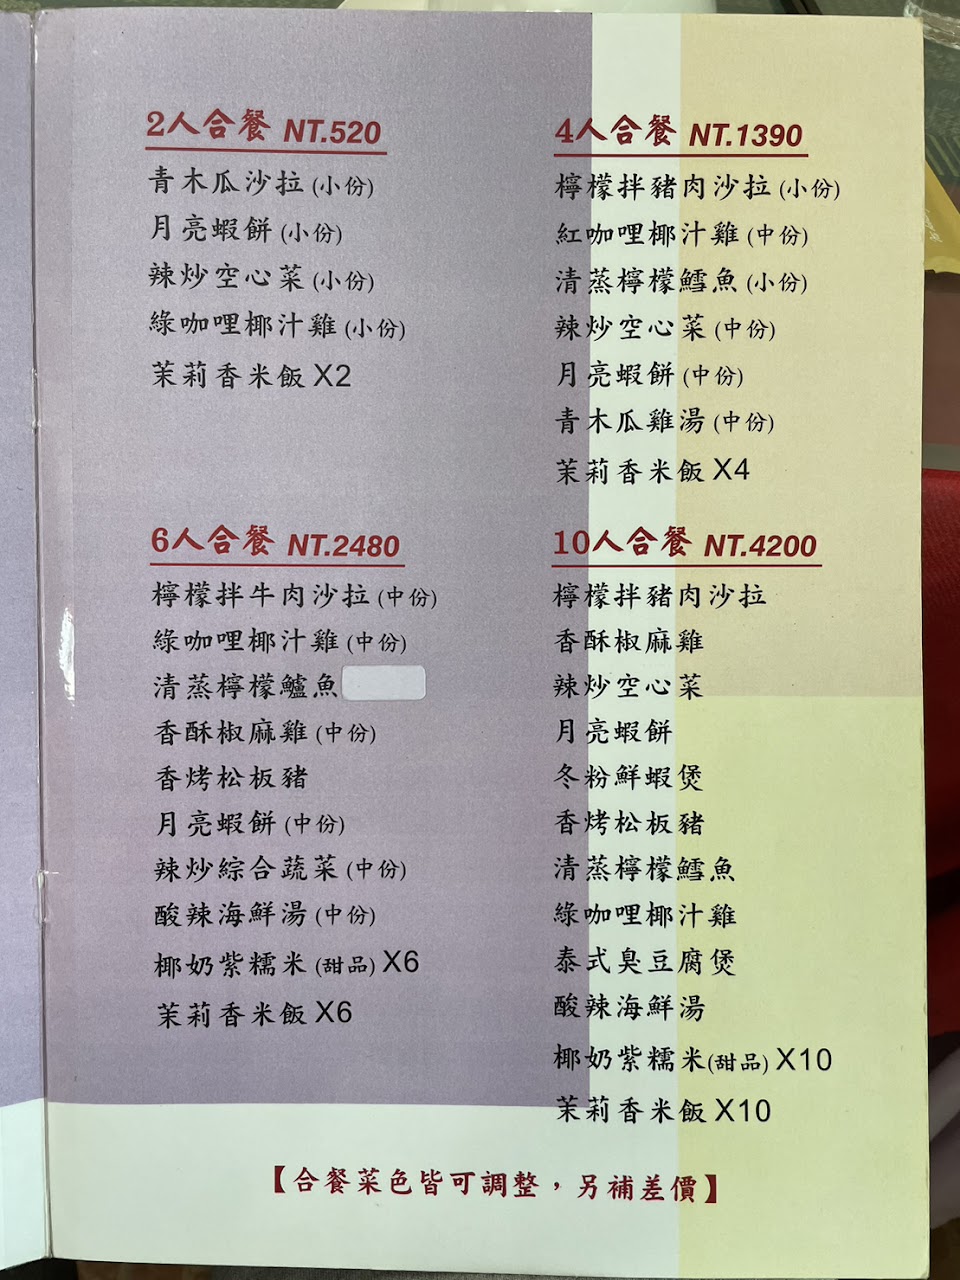 2人合餐 NT.520
青木瓜沙拉(小份)
月亮蝦餅(小份)
辣炒空心菜(小份)
綠咖哩椰汁雞(小份)
茉莉香米飯X2
4人合餐 NT.1390
檸檬拌豬肉沙拉(小份)
紅咖哩椰汁雞(中份)
清蒸檸檬鱈魚(小份)
辣炒空心菜(中份)
月亮蝦餅(中份)
青木瓜雞湯(中份)
茉莉香米飯X4
6人合餐 NT.2480
檸檬拌牛肉沙拉(中份)
綠咖哩椰汁雞(中份)
清蒸檸檬鱸魚
香酥椒麻雞(中份)
香烤松板豬
月亮蝦餅(中份)
辣炒綜合蔬菜(中份)
酸辣海鮮湯(中份)
椰奶紫糯米(甜品)X6
茉莉香米飯X6
10人合餐 NT.4200
檸檬拌豬肉沙拉
香酥椒麻雞
辣炒空心菜
月亮蝦餅
冬粉鮮蝦煲
香烤松板豬
清蒸檸檬鱈魚
綠咖哩椰汁雞
泰式臭豆腐煲
酸辣海鮮湯
椰奶紫糯米(甜品)X10
茉莉香米飯X10
【合餐菜色皆可調整，另補差價】